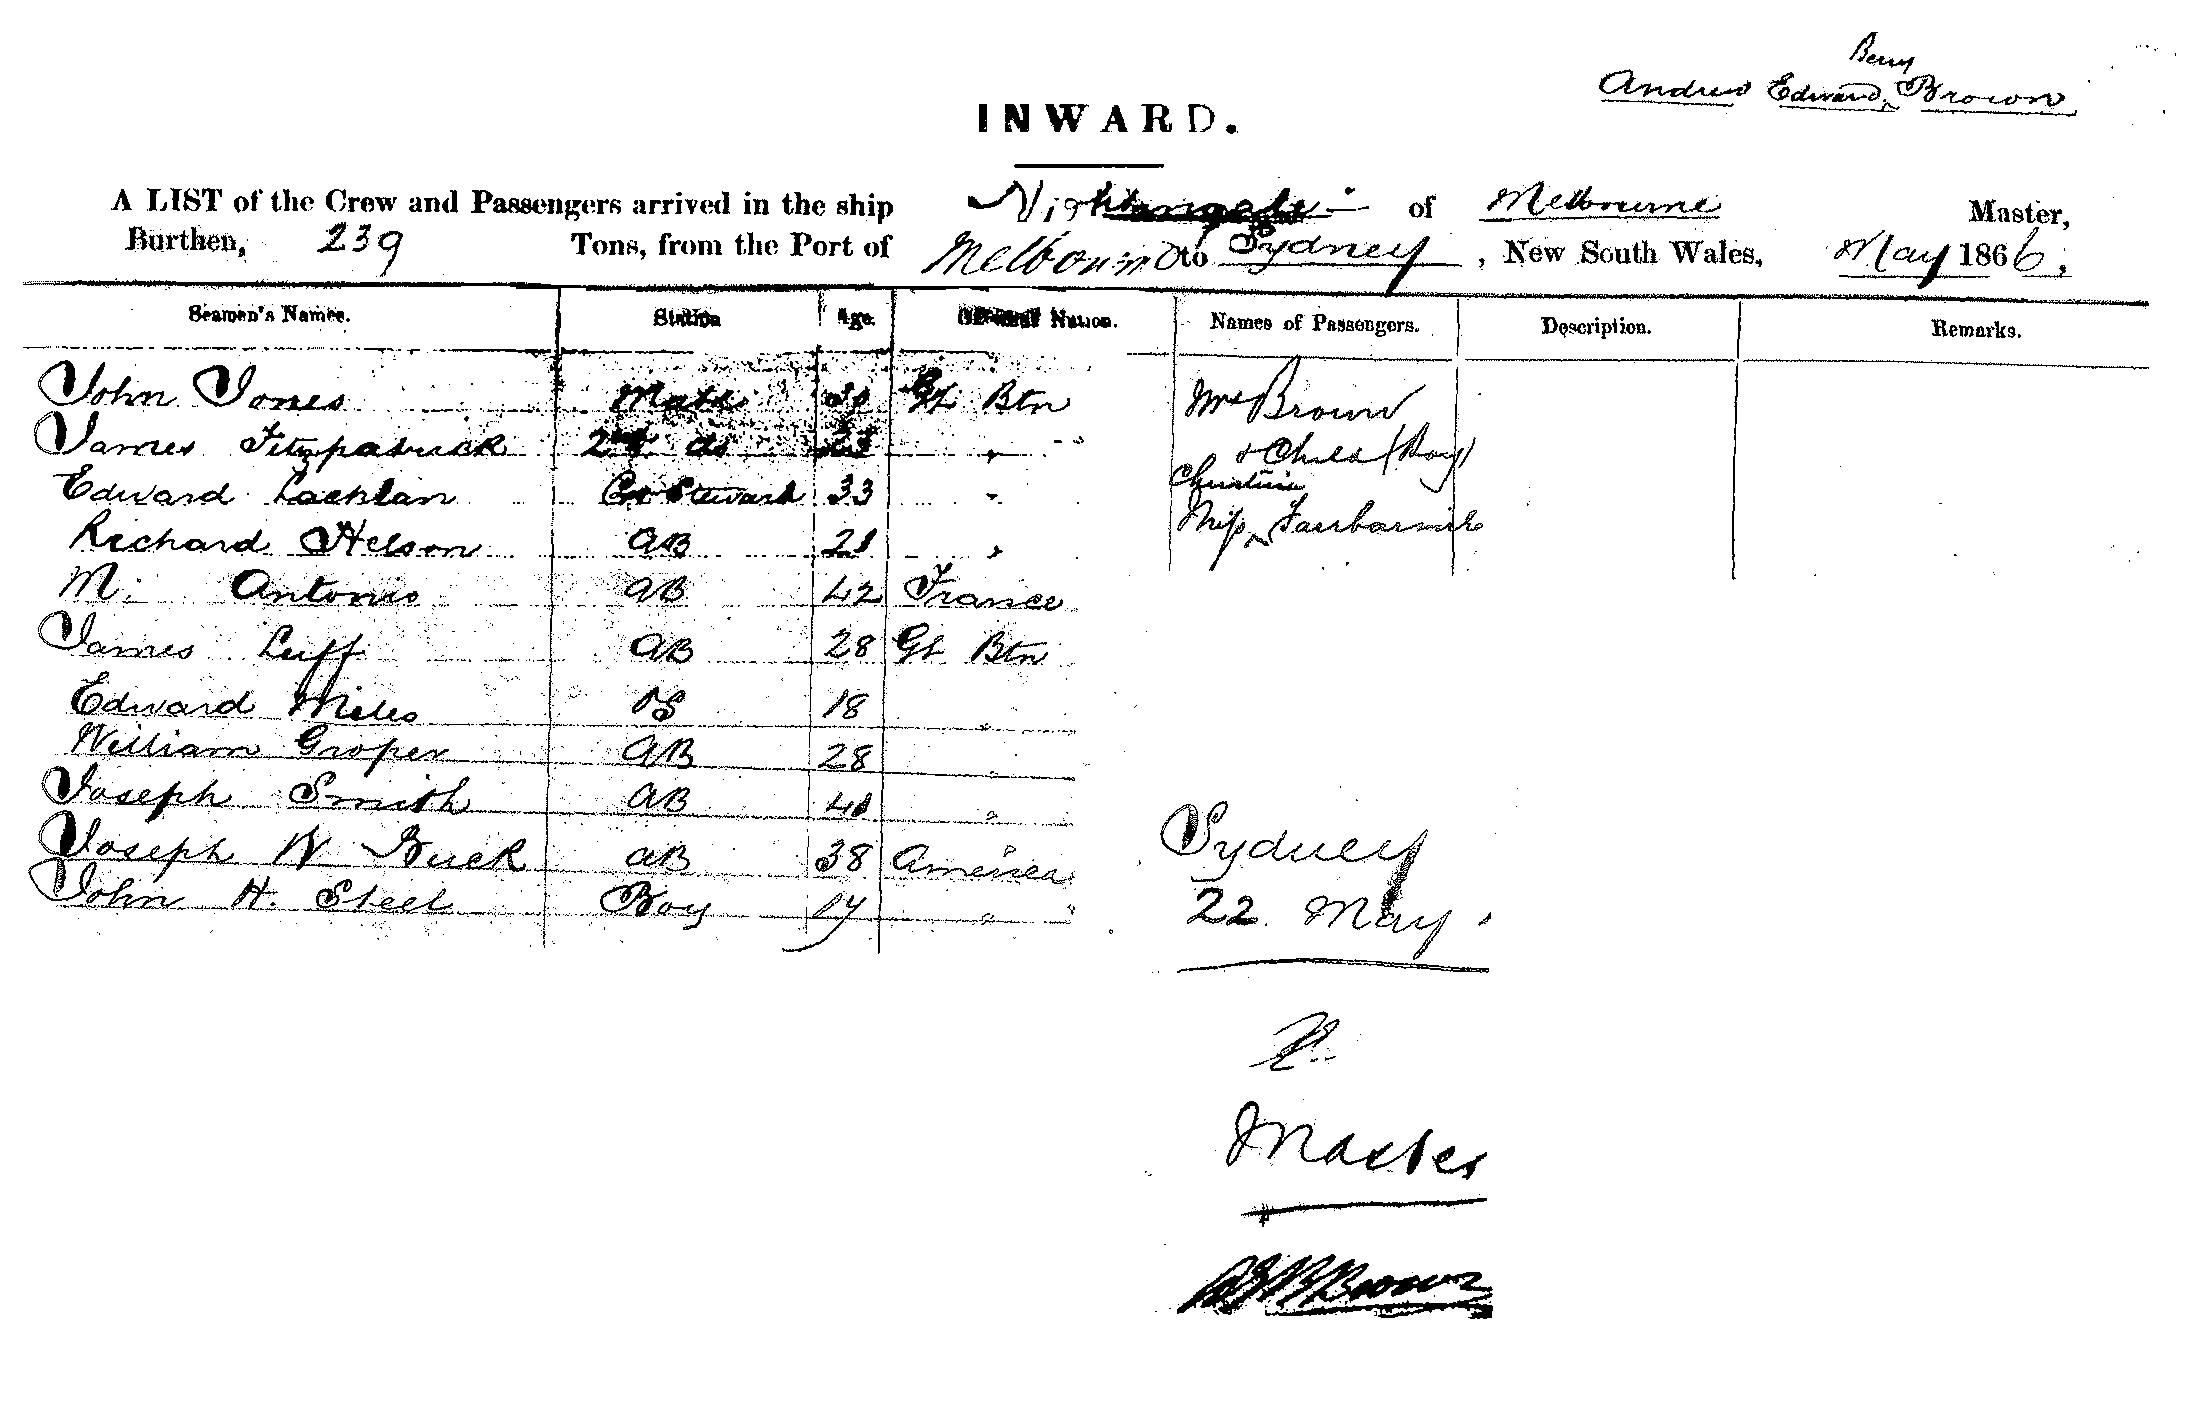 Berry
Andrew Edward ^ Brown
INWARD.
A LIST of the Crew and Passengers arrived in the ship Nightingale of Melbourne Master,
Burthen, 239 Tons, from the Port of Melbourne to Sydney, New South Wales, May 1866,
Seamen's Names. Station Age. Of what Nation. Names of Passengers. Description. Remarks.
John Jones Mate Gt Btn Mrs Brown
James Fitzpatrick 2nd do 23 " " & Child (Boy)
Christina
Edward Lachlan Steward 33 "
Richard Nelson AB 21 " Miss ^
M. Antonio AB 42 France
James Luff AB 28 Gt Btn
Edward Miles OS 18 "
William Groper AB 28 "
Joseph Smith AB 40 "
Joseph W Buck AB 38 America
John H. Steel Boy 17 " "
Sydney
22 May
Master
AEB Brown